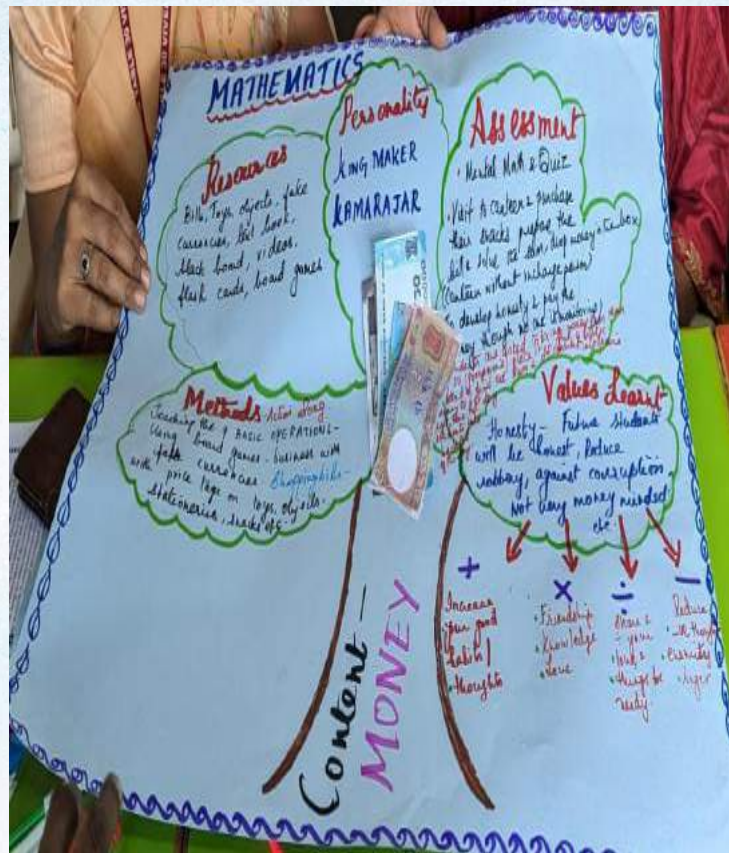 MATHEMATICS
Resources
Bills, Toys, objects, fake
currencies, text book,
black board, videos,
flash cards, board games
Personality
KING MAKER
KAMARAJAR
Assessment
• Mental Math & Quiz
• Visit to canteen & purchase
their snacks prepare the
bill & solve the sum, drop money in the box
(canteen without incharge person)
To develop honesty & pay the
money though no one is monitoring
Methods Action song
Teaching the 4 BASIC OPERATIONS -
Using board games - business with
fake currencies Shopping bills -
with price tags on toys, objects -
stationeries, snacks etc -
Values Learnt
Honesty - Future Students
will be honest, Reduce
robbery, against corruption
not very money minded
etc
+
Increase
your good
habits /
thoughts
×
• Friendship
• Knowledge
• Love
÷
Share
your
things
needy
−
Reduce
-ve thoughts
Content -
MONEY